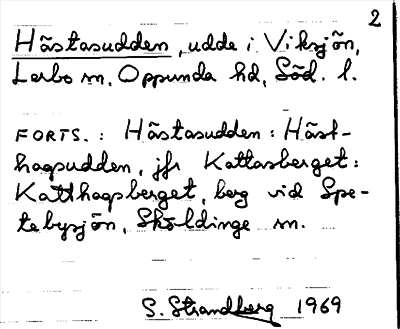 2
Hästasudden, udde i Viksjön,
Lerbo sn, Oppunda hd, Söd. l.
FORTS.: Hästasudden: Häst-
hagsudden, jfr Kattasberget:
Katthagsberget, berg vid Spe-
tebysjön, Sköldinge sn.
S. Strandberg 1969